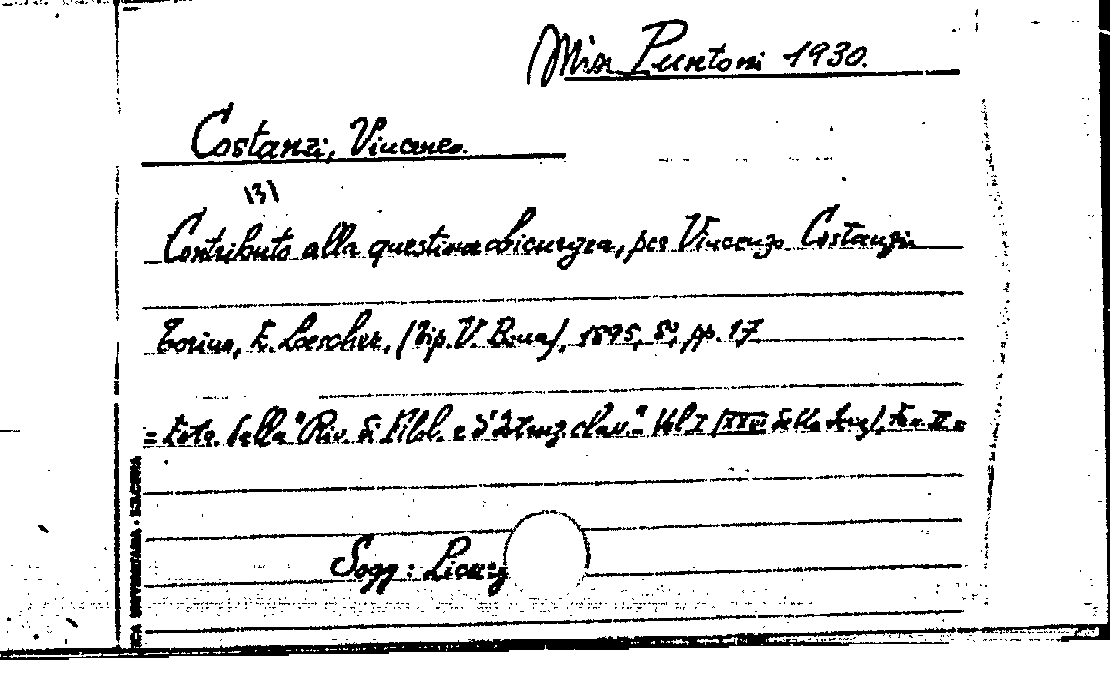 Misc Puntoni 1930.
Costanzi, Vincenzo.
131
Contributo alla questione licurgea, per Vincenzo Costanzi.
Torino, E. Loescher, (Tip. V. Bona), 1895, 8°, pp. 17
= Estr. dalla "Riv. di Filol. e d'Istruz. class." Vol I (XXVI della), Fasc. II =
Sogg: Licurg